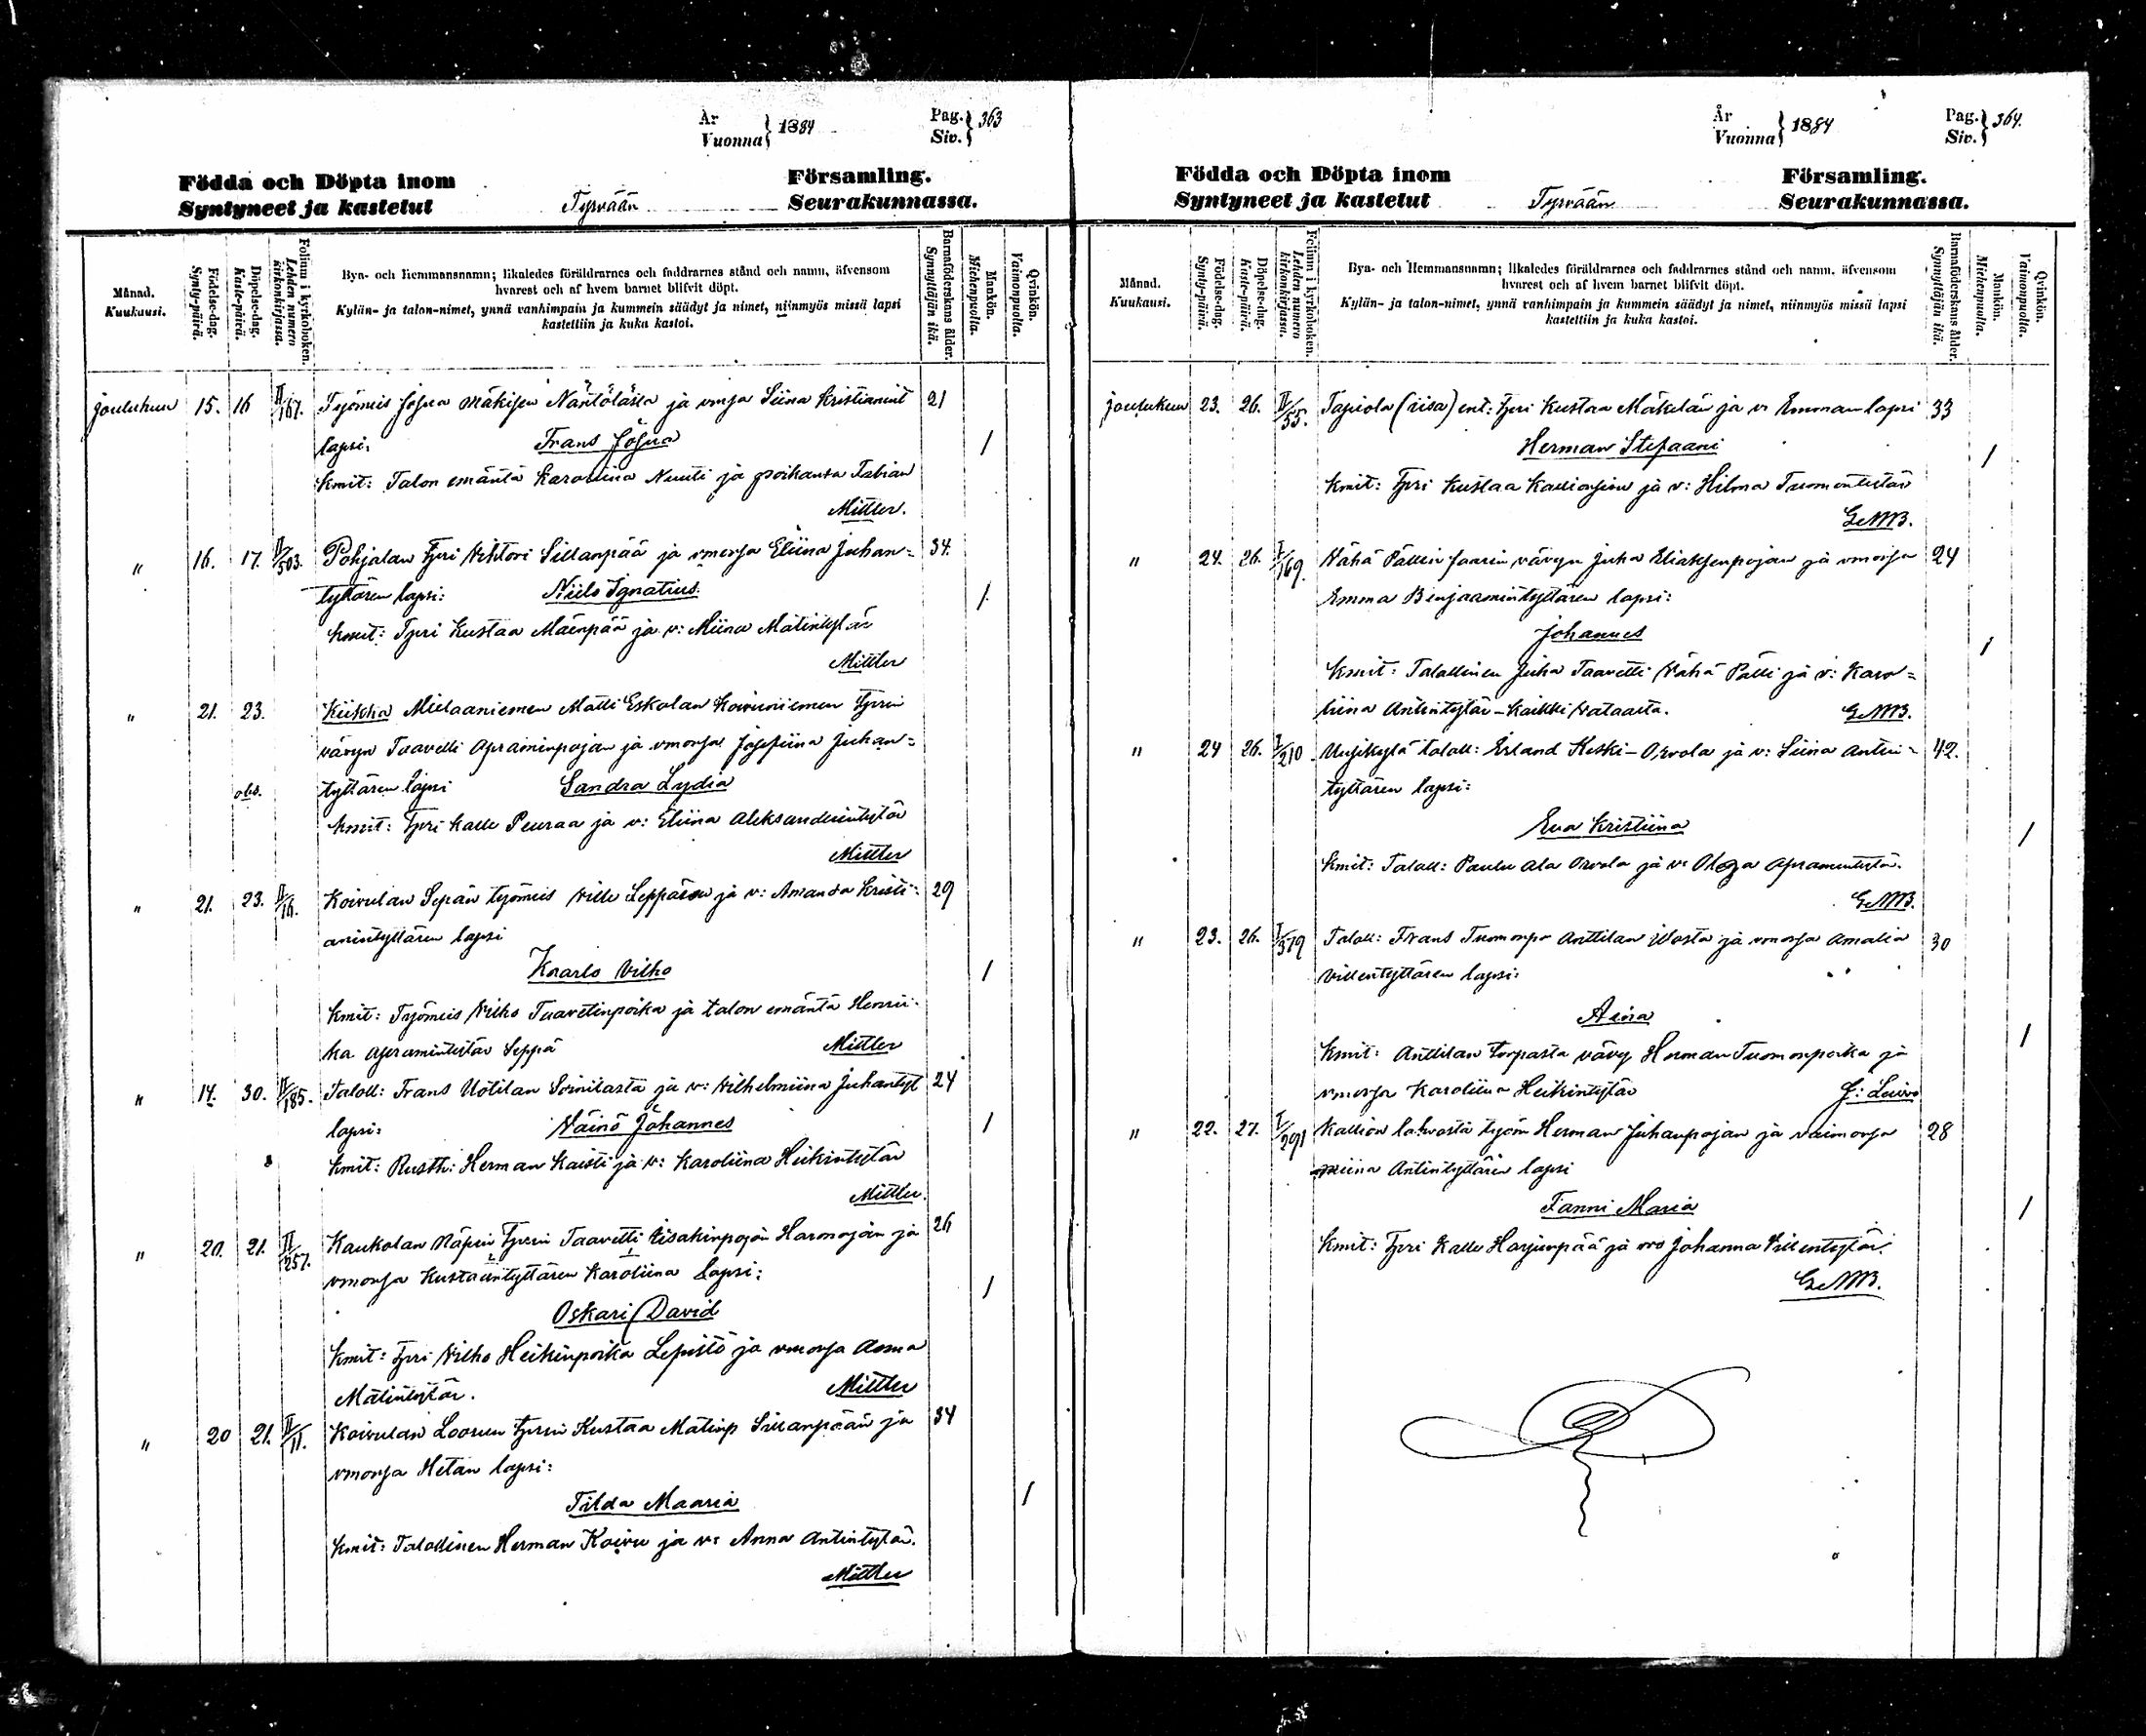 År
Vuonna } 1884
Pag.
Siv. } 363
Födda och Döpta inom
Församling.
Syntyneet ja kastetut
Tyrvään
Seurakunnassa.
Månad.
Kuukausi.
Födelse-dag.
Synty-päivä.
Döpelse-dag.
Kaste-päivä.
Folium i kyrkoboken.
Lehden numero kirkonkirjassa.
Bya- och Hemmansnamn; likaledes föräldrarnes och faddrarnes stånd och namn, äfvensom
hvarest och af hvem barnet blifvit döpt.
Kylän- ja talon-nimet, ynnä vanhimpain ja kummein säädyt ja nimet, niinmyös missä lapsi
kastettiin ja kuka kastoi.
Barnaföderskans ålder.
Synnyttäjän ikä.
Mankön.
Miehenpuolta.
Qvinkön.
Vaimonpuolta.
joulukuu 15. 16 II/167. Työmies Josua Mäkisen Näntölästä ja vmsa Liina Kristianint 21
lapsi: Frans Josua 1
Kmit: Talon emäntä Karoliina Nuuti ja poikansa Fabian
Mittler.
" 16. 17. II/503. Pohjalan Tpri Vihtori Sillanpää ja vmonsa Eliina Juhan= 34.
tyttären lapsi: Niilo Ignatius. 1
Kmit: Tpri Kustaa Mäenpää ja v: Miina Matintytär
Mittler
" 21. 23. Kiikka Mielaaniemen Matti Eskolan Koivuniemen Tprin
vävyn Taavetti Apraminpojan ja vmonsa Josefiina Juhan=
obs. tyttären lapsi Sandra Lydia
Kmit: Tpri Kalle Peuraa ja v: Eliina Aleksanderintytär
Mittler
" 21. 23. II/16. Koivulan Sepän työmies Ville Leppäsen ja v: Amanda Kristi= 29
anintyttären lapsi
Kaarlo Vilho 1
Kmit: Työmies Vilho Taavetinpoika ja talon emäntä Henrii-
ka Apramintytär Seppä Mittler
" 14. 30. II/185. Taloll: Frans Uotilan Soinilasta ja v: Vilhelmiina Juhantyt 24
lapsi: Väinö Johannes 1
Kmit: Rusth: Herman Kaisti ja v: Karoliina Heikintytär
Mittler.
" 20. 21. II/257. Kaukolan Näpin Tprin Taavetti Iisakinpojan Harmojan ja 26
vmonsa Kustaantyttären Karoliina lapsi: 1
Oskari David
Kmit: Tpri Vilho Heikinpoika Lepistö ja vmonsa Anna
Matintytär. Mittler
" 20 21. II/11. Koivulan Loosen Tprin Kustaa Matinp Sillanpään ja 34
vmonsa Hetan lapsi:
Tilda Maaria 1
Kmit: Talollinen Herman Koivu ja v: Anna Antintytär.
Mittler
År
Vuonna } 1884
Pag.
Siv. } 364.
Födda och Döpta inom
Församling.
Syntyneet ja kastetut
Tyrvään
Seurakunnassa.
Månad.
Kuukausi.
Födelse-dag.
Synty-päivä.
Döpelse-dag.
Kaste-päivä.
Folium i kyrkoboken.
Lehden numero kirkonkirjassa.
Bya- och Hemmansnamn; likaledes föräldrarnes och faddrarnes stånd och namn, äfvensom
hvarest och af hvem barnet blifvit döpt.
Kylän- ja talon-nimet, ynnä vanhimpain ja kummein säädyt ja nimet, niinmyös missä lapsi
kastettiin ja kuka kastoi.
Barnaföderskans ålder.
Synnyttäjän ikä.
Mankön.
Miehenpuolta.
Qvinkön.
Vaimonpuolta.
joulukuu 23. 26. II/55. Tapiola (iisa) ent: Tpri Kustaa Mäkelän ja v: Emman lapsi 33
Herman Stefaani 1
Kmit: Tpri Kustaa Kallionpien ja v: Hilma Tuomontytär
" 24. 26. I/169. Vähä Pällin Jaarin vävyn Juha Eliaksenpojan ja vmonsa 24
Emma Benjaamintyttären lapsi:
Johannes 1
Kmit: Talollinen Juha Taavetti Vähä Pälli ja v: Karo=
liina Antintytär-Kaikki Vataasta.
" 24 26. I/210. Uusikylä talall: Erland Keski-Orvola ja v: Liina Antin- 42.
tyttären lapsi:
Eva Kristiina 1
Kmit: Talall: Paulu Ala Orvola ja v: Olga Apramintytär.
" 23. 26. I/379 Talall: Frans Tuomonpo Anttilan Vosta ja vmonsa Amalia 30
Villentyttären lapsi:
Aina 1
Kmit: Anttilan torpasta vävy Herman Tuomonpoika ja
vmonsa Karoliina Heikintytär J: Leivo
" 22. 27. I/291 Kallion lahvosta työm Herman Juhanpojan ja vaimonsa 28
Miina Antintyttären lapsi
Fanni Maria 1
Kmit: Tpri Kalle Harjunpää ja vmo Johanna Villentytär.